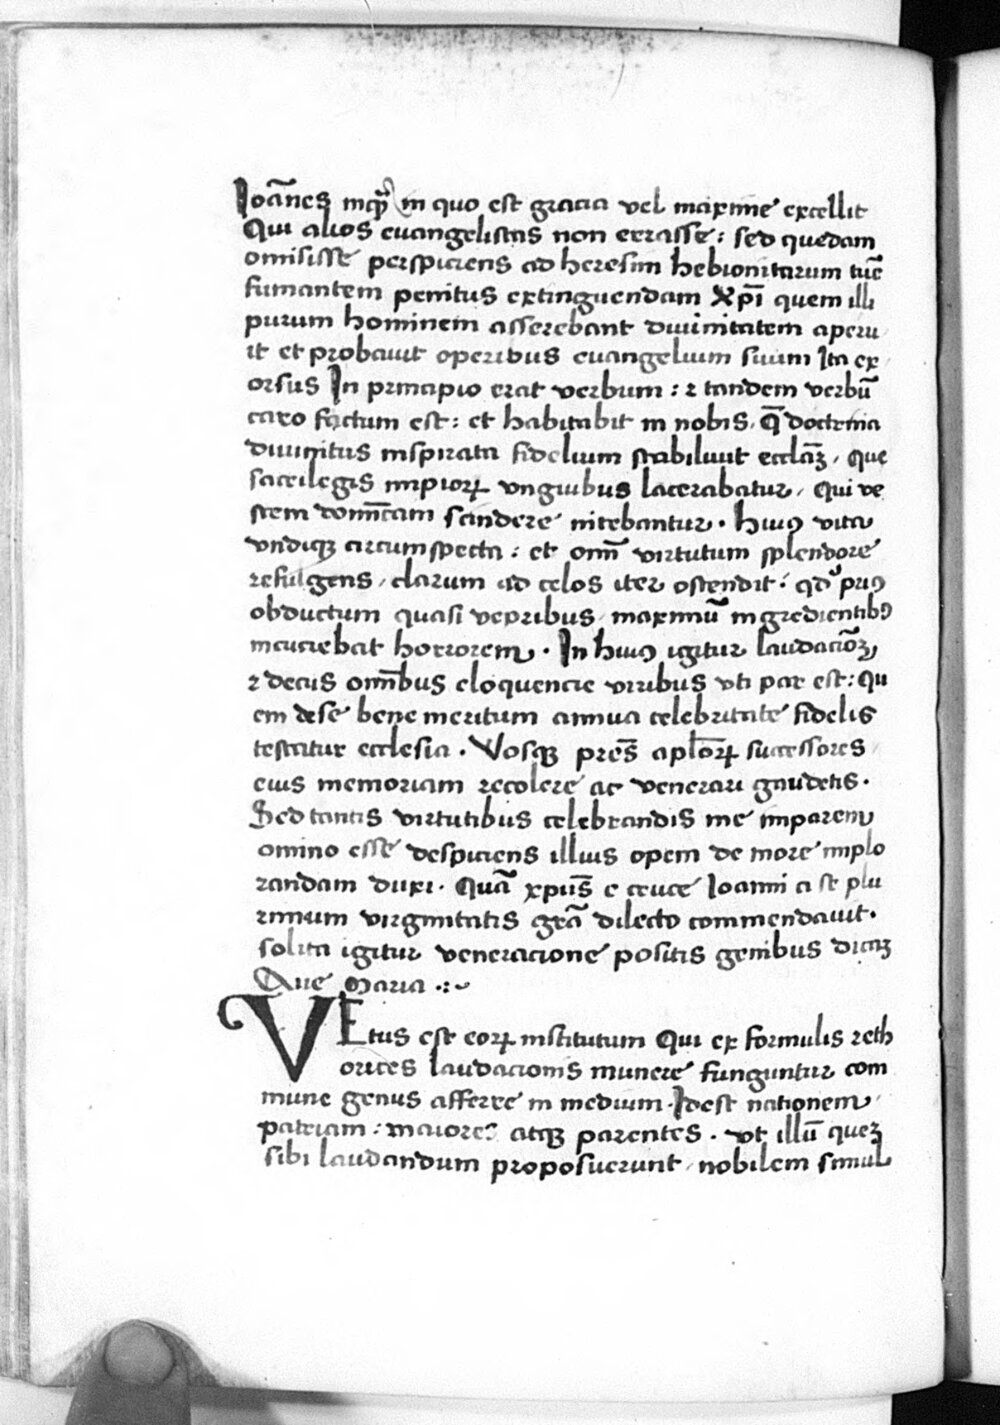 Ioãnes inqͣ in quo est gracia vel maxime excellit
Qui alios euangelistas non errasse: sed quedam
omisisse perspiciens ad heresim hebionitarum tūc
fumantem penitus extinguendam Xp̄i quem illi
purum hominem asserebant diuinitatem aperu
it et probauit operibus euangelium suum Ita ex
orsus In principio erat verbum: ꝛ tandem verbū
caro factum est: et habitabit in nobis. q̄ doctrina
diuinitus inspirata fidelium stabiliuit eccl̄aꝫ, que
sacrilegis impioꝝ vnguibus lacerabatur, Qui ve
stem domīcam scindere nitebantur. huiꝯ vita
vndiqꝫ circumspecta: et omī virtutum splendore
refulgens, clarum ad celos iter ostendit: qd' priꝯ
obductum quasi vepribus, maximū ingredientibꝯ
incuciebat horrorem. In huiꝯ igitur laudacōꝫ,
ꝛ decus omībus eloquencie viribus vti par est: Qu
em de se bene meritum annua celebritate fidelis
testatur ecclesia. Vosqꝫ pr̄es apl̄oꝝ successores
eius memoriam recolere ac venerari gaudetis.
Sed tantis virtutibus celebrandis me imparem
omino esse despiciens illius opem de more implo
randam duxi. Quā xp̄us e cruce Ioanni a se plu
rimum virginitatis gr̄a dilecto commendauit.
solita igitur veneracione positis genibus dicaꝫ
Aue Maria .:~
VEtus est eoꝝ institutum Qui ex formulis reth
orices laudacionis munere funguntur com
mune genus afferre in medium. Idest nationem,
patriam: maiores atqꝫ parentes. vt illū queꝫ
sibi laudandum proposuerunt, nobilem simul